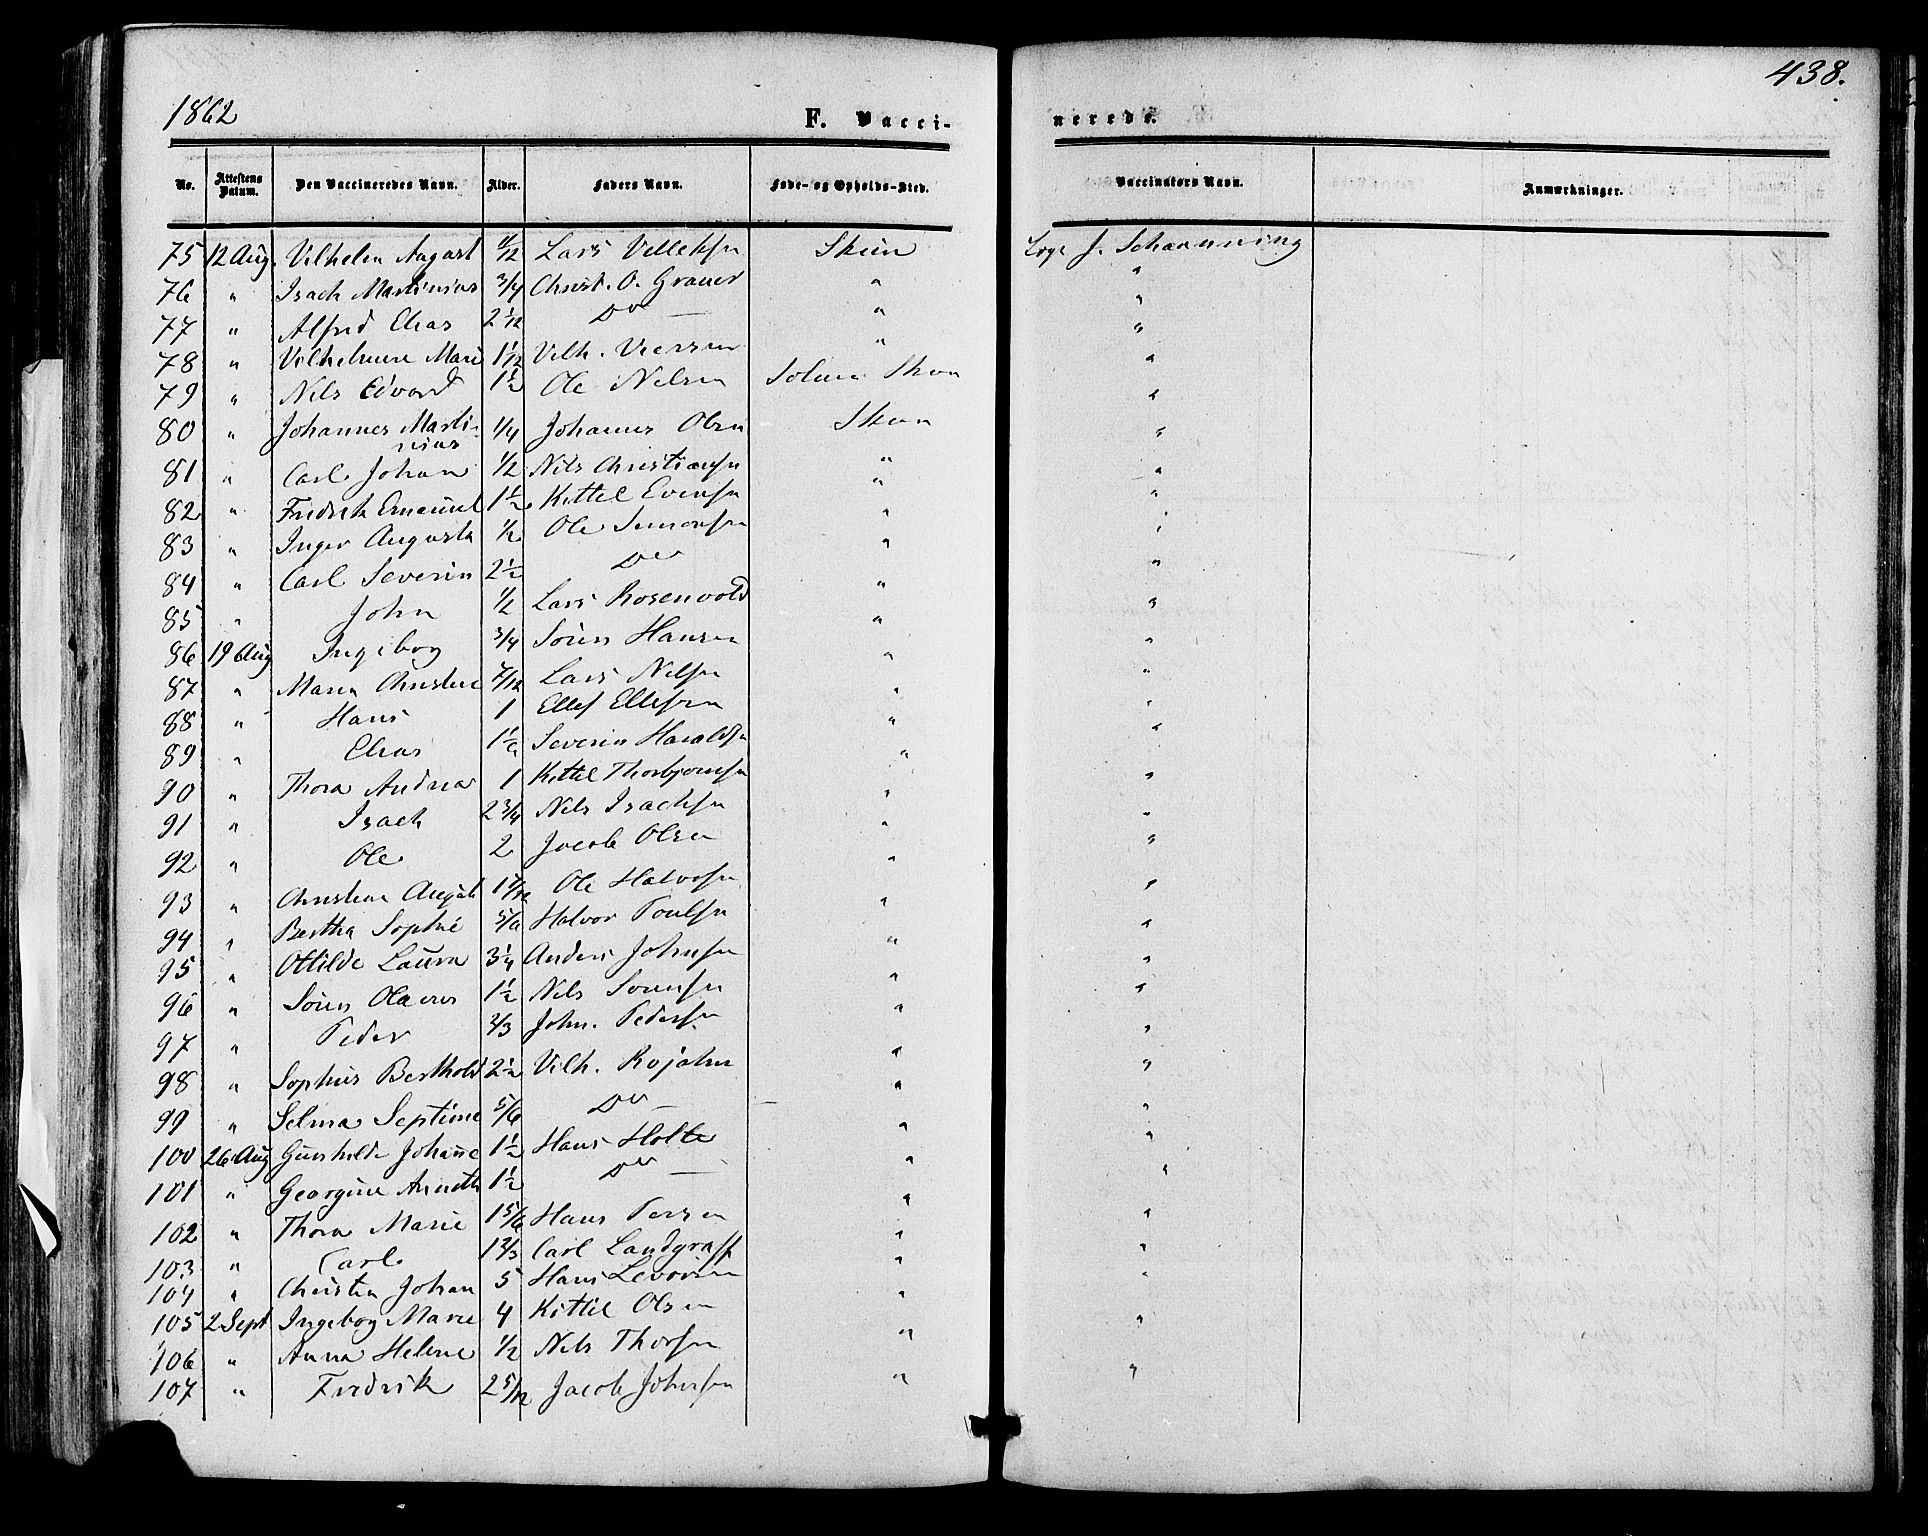 1862
F. Vacci-
nerede.
438.
No. Attestens Datum. Den Vaccineredes Navn. Alder. Faders Navn. Føde- og Opholds-Sted. Vaccinators Navn. Anmærkninger.
75 12 Aug. Vilhelm August Lars Skien J. Schanning
76 " Isach Martinius 3/4 Christ. O. Graver " "
77 " Alfred Elias 2 1/12 Do — " "
78 " Vilhelmine Marie 1 1/12 Vilh. " "
79 " Nils Edvard 1 1/2 Ole Nilsen Solum Skien "
80 " Johannes Martinius 1/4 Johannes Olsen Skien "
81 " Carl Johan 1/2 Nils Christiansen " "
82 " Fredrik Emanuel 1 1/2 Kittel Evensen " "
83 " Inger Augusta 1/2 Ole Simonsen " "
84 " Carl Severin 2 1/2 Do " "
85 " John 1/2 Lars Rosenvold " "
86 19 Aug Ingeborg 3/4 Sören Hansen " "
87 " Maren Christine 7/12 Lars Nilsen " "
88 " Hans 1 Ellef Ellefsen " "
89 " Elias Severin Haraldsen " "
90 " Thora Andrea 1 Kittel Thorbjornsen " "
91 " Isach 2 3/4 Nils Isachsen " "
92 " Ole 2 Jacob Olsen " "
93 " Christine Ole Halvorsen " "
94 " Bertha Sophie Halvor Poulsen " "
95 " Ottilde Laura 3 1/4 Anders Johnsen " "
96 " Sören Olaus 1 1/2 Nils Sörensen " "
97 " Peder 2/3 John. Pedersen " "
98 " Sophus Berthold 2 1/2 Vilh. Rojahn " "
99 " Selma Septime 5/6 Do — " "
100 26 Aug Gunhilde Johanne 1 1/2 Hans Holte " "
101 " Georgine Anneth 1 1/2 Do — " "
102 " Thora Marie 1 5/6 Hans " "
103 " Carl 1 2/3 Carl Landgraff " "
104 " Christen Johan 5 Hans Levorsen " "
105 2 Sept Ingeborg Marie 4 Kittil Olsen " "
106 " Anna Helene 1/2 Nils Thorsen "
107 " Fredrik 2 5/12 Jacob Johnsen " "